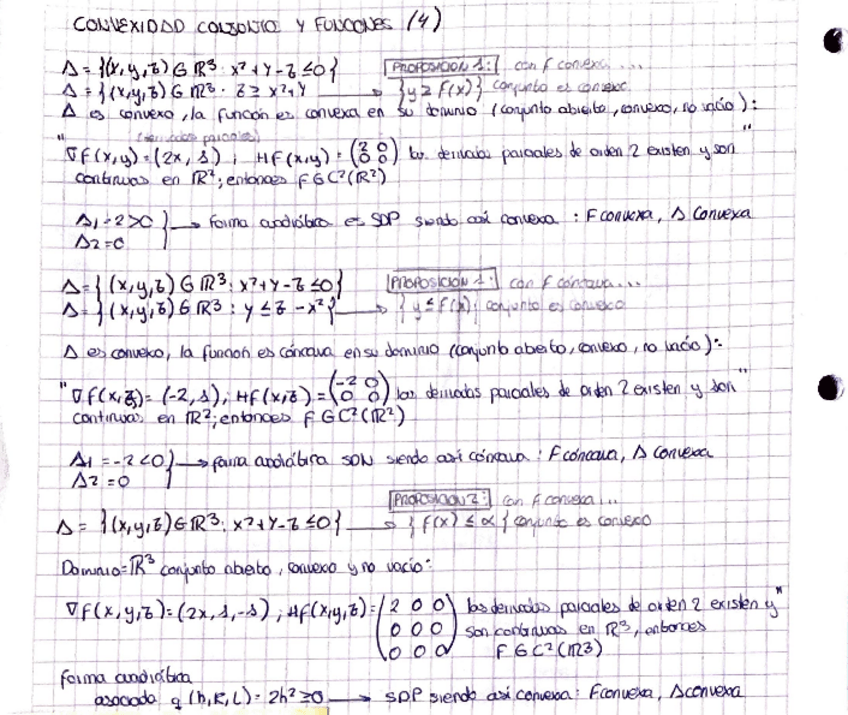 CONVEXIDAD CONJUNTO Y FUNCIONES (4)
Δ = {(x,y,z) ∈ ℝ³: x²+y-z ≤0} PROPOSICIÓN 1: con f convexa ...
Δ = {(x,y,z) ∈ ℝ³: z ≥ x²+y → {y ≥ f(x)} conjunto es convexo.
Δ es convexo, la función es convexa en su dominio (conjunto abierto, convexo, no vacío):
(derivadas parciales)
" ∇f(x,y)=(2x,1); Hf(x,y)=(2 0 / 0 0) las derivadas parciales de orden 2 existen y son "
continuas en ℝ²; entonces f ∈ C²(ℝ²)
Δ1=2>0 } → forma cuadrática es SDP siendo así convexa: F convexa, Δ convexa
Δ2=0
Δ = {(x,y,z) ∈ ℝ³: x²+y-z ≤0} PROPOSICIÓN 1: con f cóncava...
Δ = {(x,y,z) ∈ ℝ³: y ≤ z - x²} → {y ≤ f(x)} conjunto es convexo
Δ es convexo, la función es cóncava en su dominio (conjunto abierto, convexo, no vacío):
" ∇f(x,z)=(-2,1); Hf(x,z)=(-2 0 / 0 0) las derivadas parciales de orden 2 existen y son "
continuas en ℝ²; entonces f ∈ C²(ℝ²)
Δ1=-2<0 } → forma cuadrática SDN siendo así cóncava: F cóncava, Δ convexa
Δ2=0
PROPOSICIÓN 2: con f convexa...
Δ = {(x,y,z) ∈ ℝ³: x²+y-z ≤0} → {f(x) ≤ α} conjunto es convexo
Dominio=ℝ³ conjunto abierto, convexo y no vacío:
∇f(x,y,z)=(2x,1,-1); Hf(x,y,z)=(2 0 0 / 0 0 0 / 0 0 0) las derivadas parciales de orden 2 existen y "
son continuas en ℝ³, entonces
f ∈ C²(ℝ³)
forma cuadrática
asociada q(h,k,l)=2h² ≥0 → SDP siendo así convexa: F convexa, Δ convexa